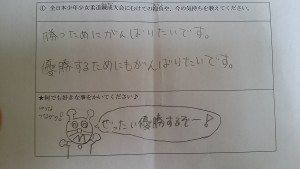 ① 全日本少年少女柔道錬成大会にむけての抱負や、今の気持ちを教えてください。
勝つためにがんばりたいです。
優勝するためにもがんばりたいです。
★何でも好きな事をかいてください♪
ぜったい優勝するぞー♪